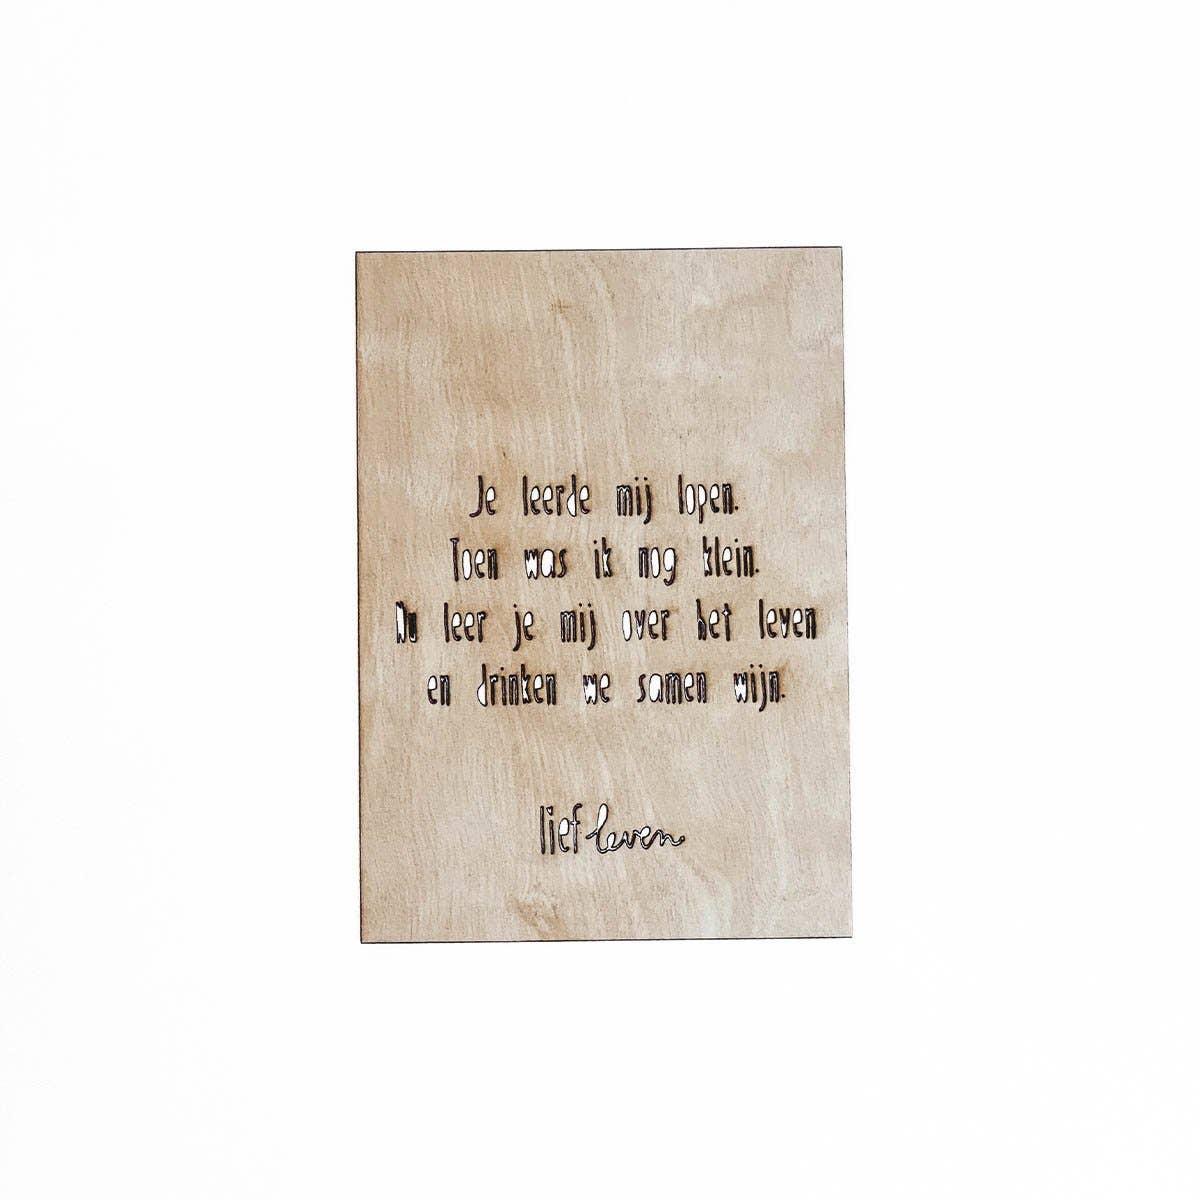 Je leerde mij lopen.
Toen was ik nog klein.
Nu leer je mij over het leven
en drinken we samen wijn.
lief leven.